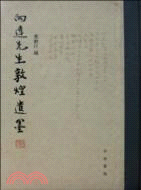 向達先生敦煌遺墨
榮新江 編
中華書局